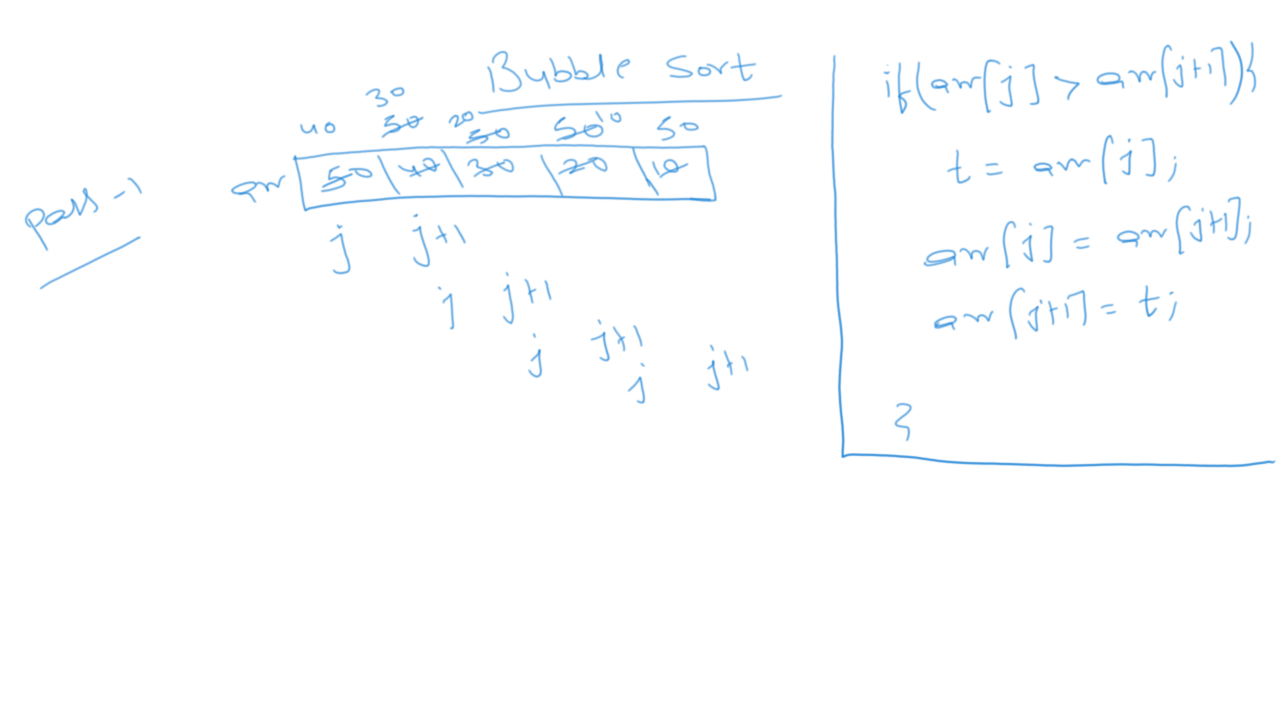 Bubble Sort
30
40 50 20 50 50 10 50
arr 50 40 30 20 10
Pass-1
j j+1
j j+1
j j+1
j j+1
if(arr[j] > arr[j+1]){
t = arr[j];
arr[j] = arr[j+1];
arr[j+1] = t;
}